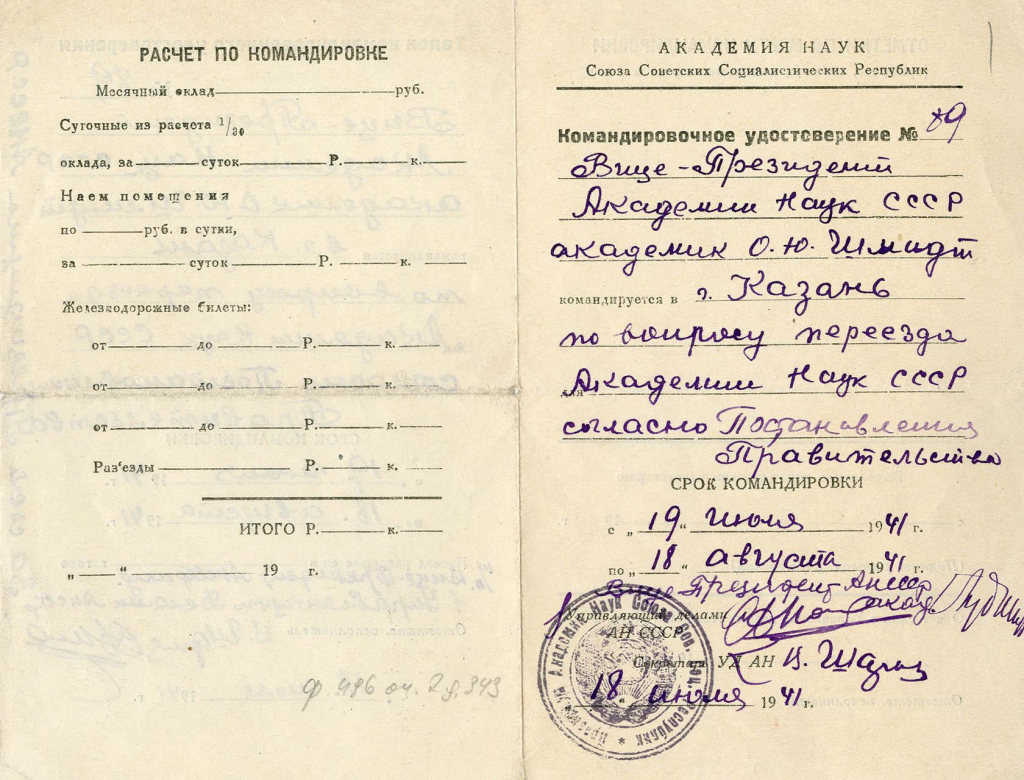 РАСЧЕТ ПО КОМАНДИРОВКЕ
Месячный оклад руб.
Суточные из расчета 1/30
оклада, за суток Р. к.
Наем помещения
по руб. в сутки,
за суток Р. к.
Железнодорожные билеты:
от до Р. к.
от до Р. к.
от до Р. к.
Раз'езды Р. к.
ИТОГО Р. к.
„ “ 19 г.
ф. 496 оп. 2 д. 343
АКАДЕМИЯ НАУК
Союза Советских Социалистических Республик
Командировочное удостоверение № 89
Вице-Президент
Академии Наук СССР
академик О.Ю. Шмидт
командируется в г. Казань
по вопросу переезда
для Академии Наук СССР
согласно Постановления
Правительства
СРОК КОМАНДИРОВКИ
с „19“ июля 1941 г.
по „18“ августа 1941 г.
Вице Президент АН СССР
Управляющий делами акад.
АН СССР
Секретарь УД АН
„18“ июля 1941 г.